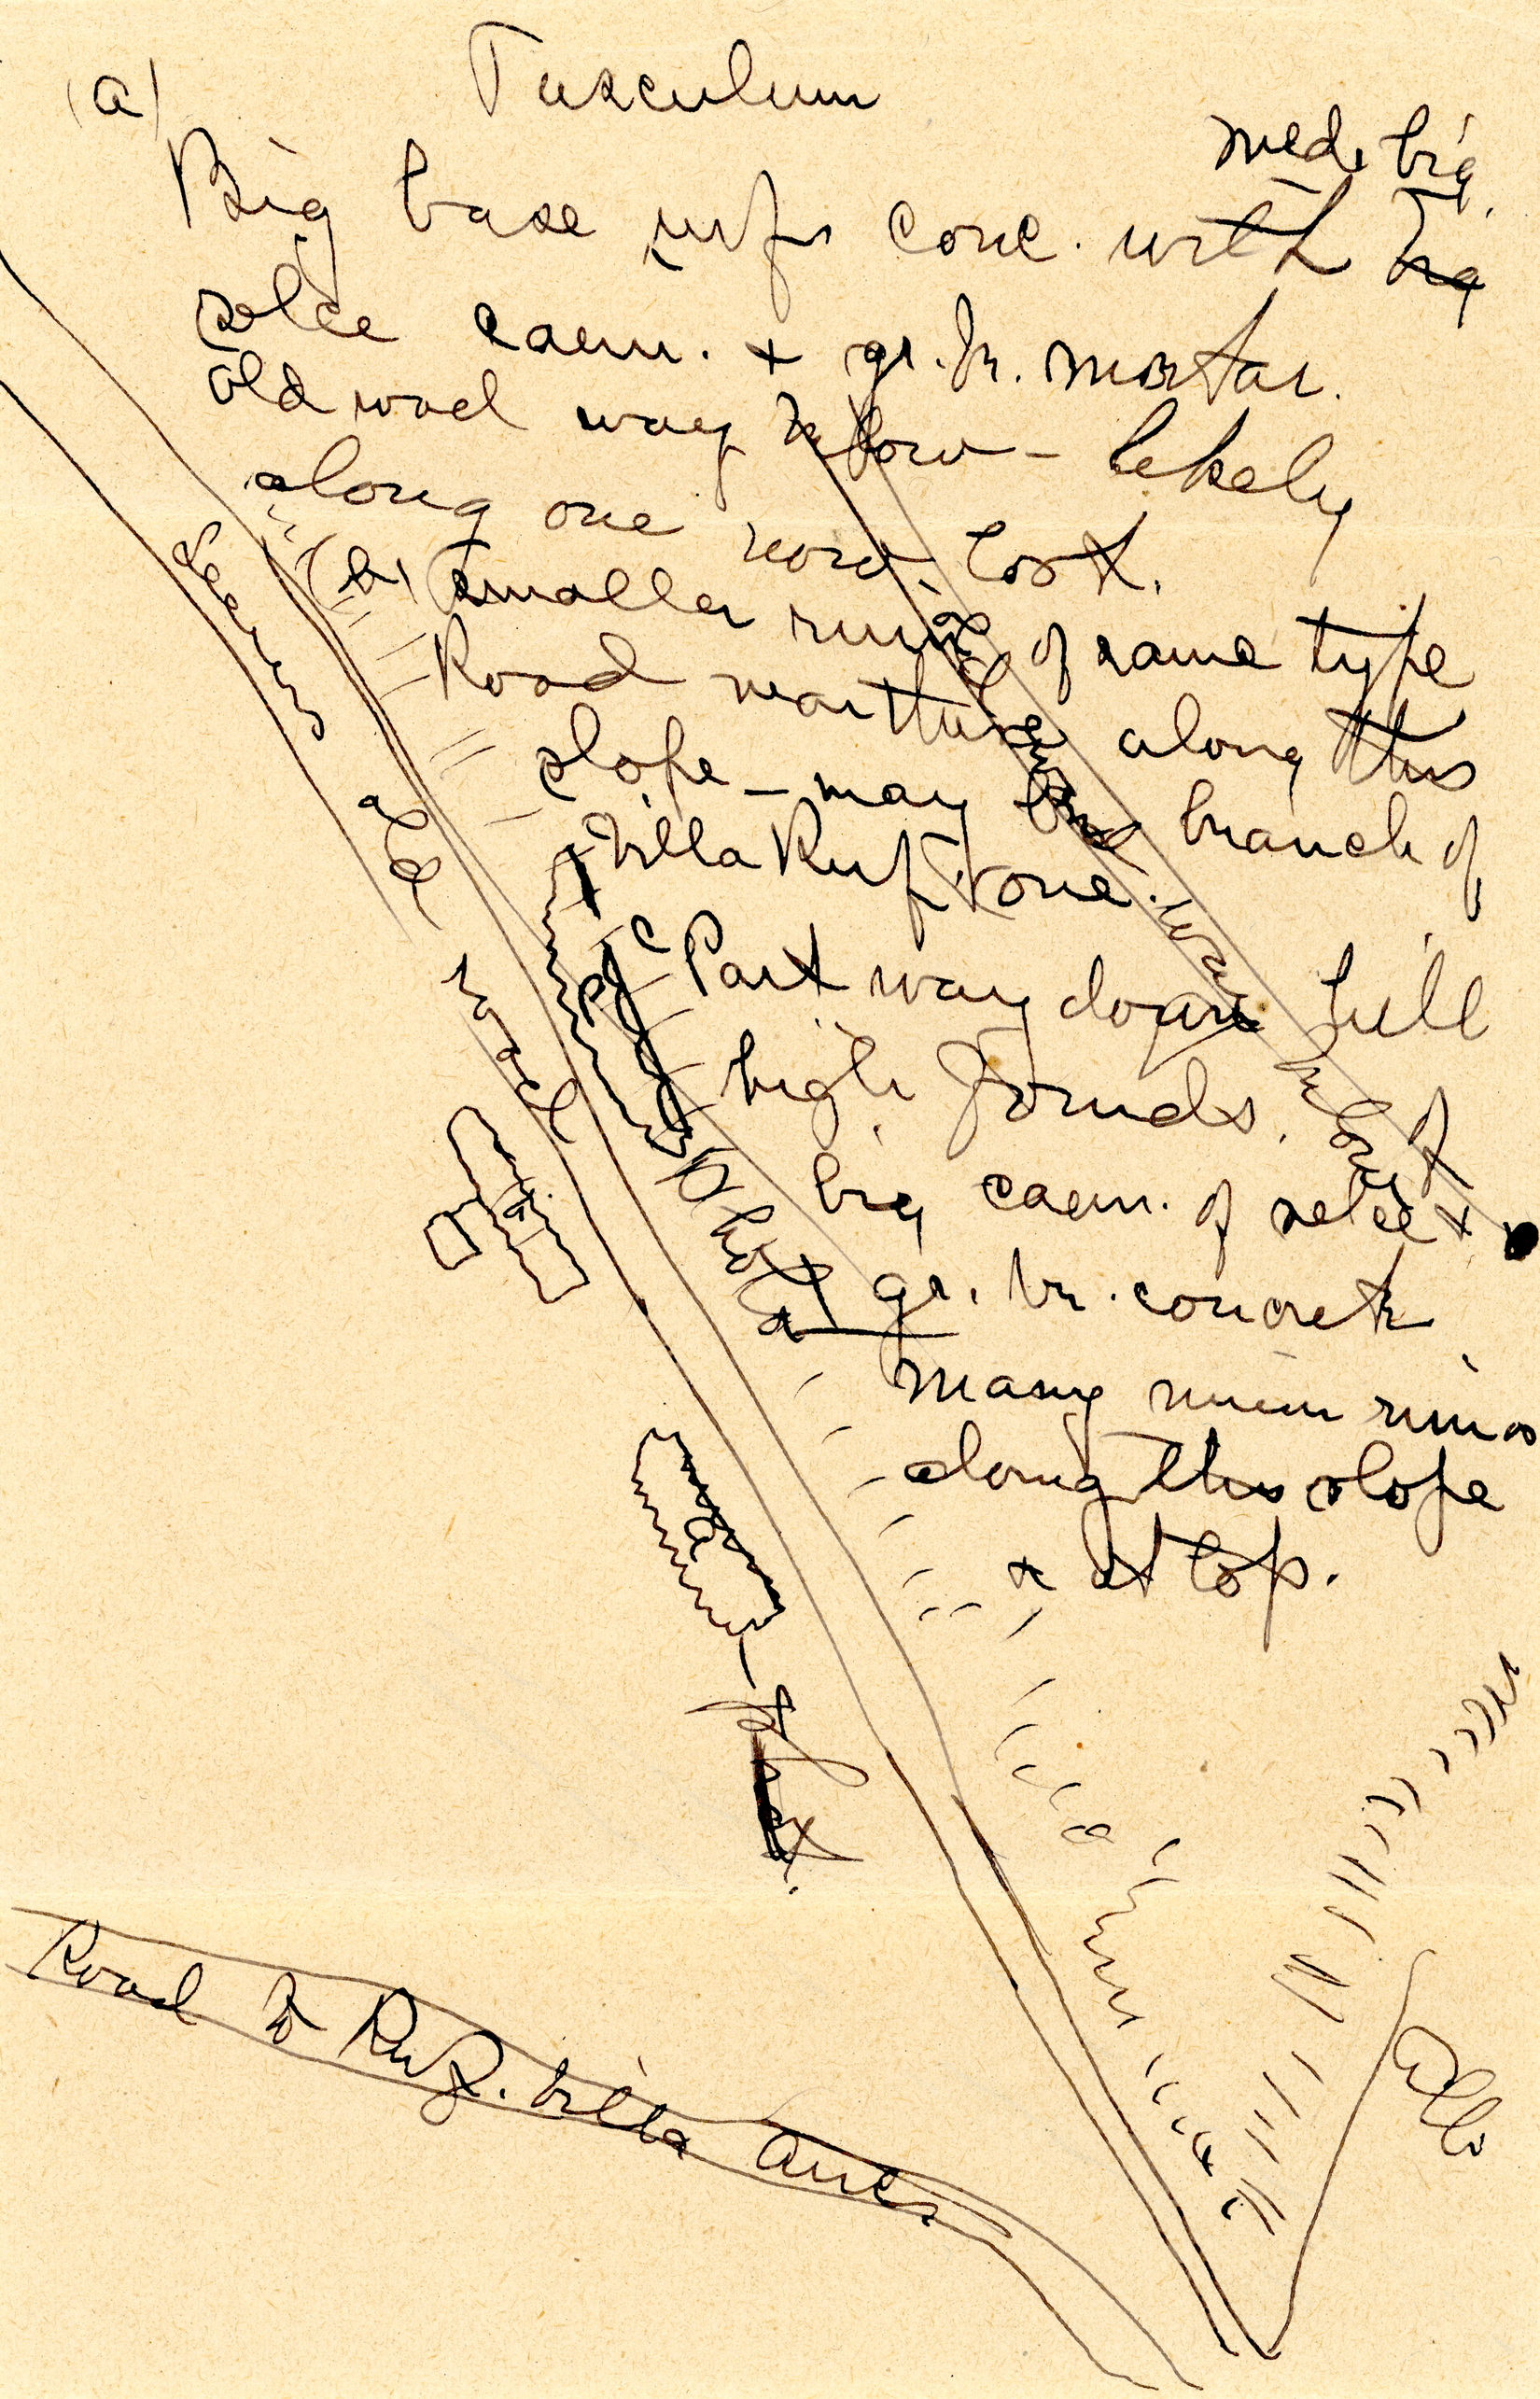 (a) Tusculum
med. big
Big base conc. with big
selce caem. + gr. br. mortar.
Old road way below - likely
along one now lost.
(b) Smaller ruin of same type
Road went along this
slope - may be branch of
Villa Ruf. one.
c Part way down hill
high founds. of
big caem. of selce +
gr. br. concrete
Many ruins
along this slope
& at top.
seems old road
old road way below
Photo
a
a
Road to Ruf. villa